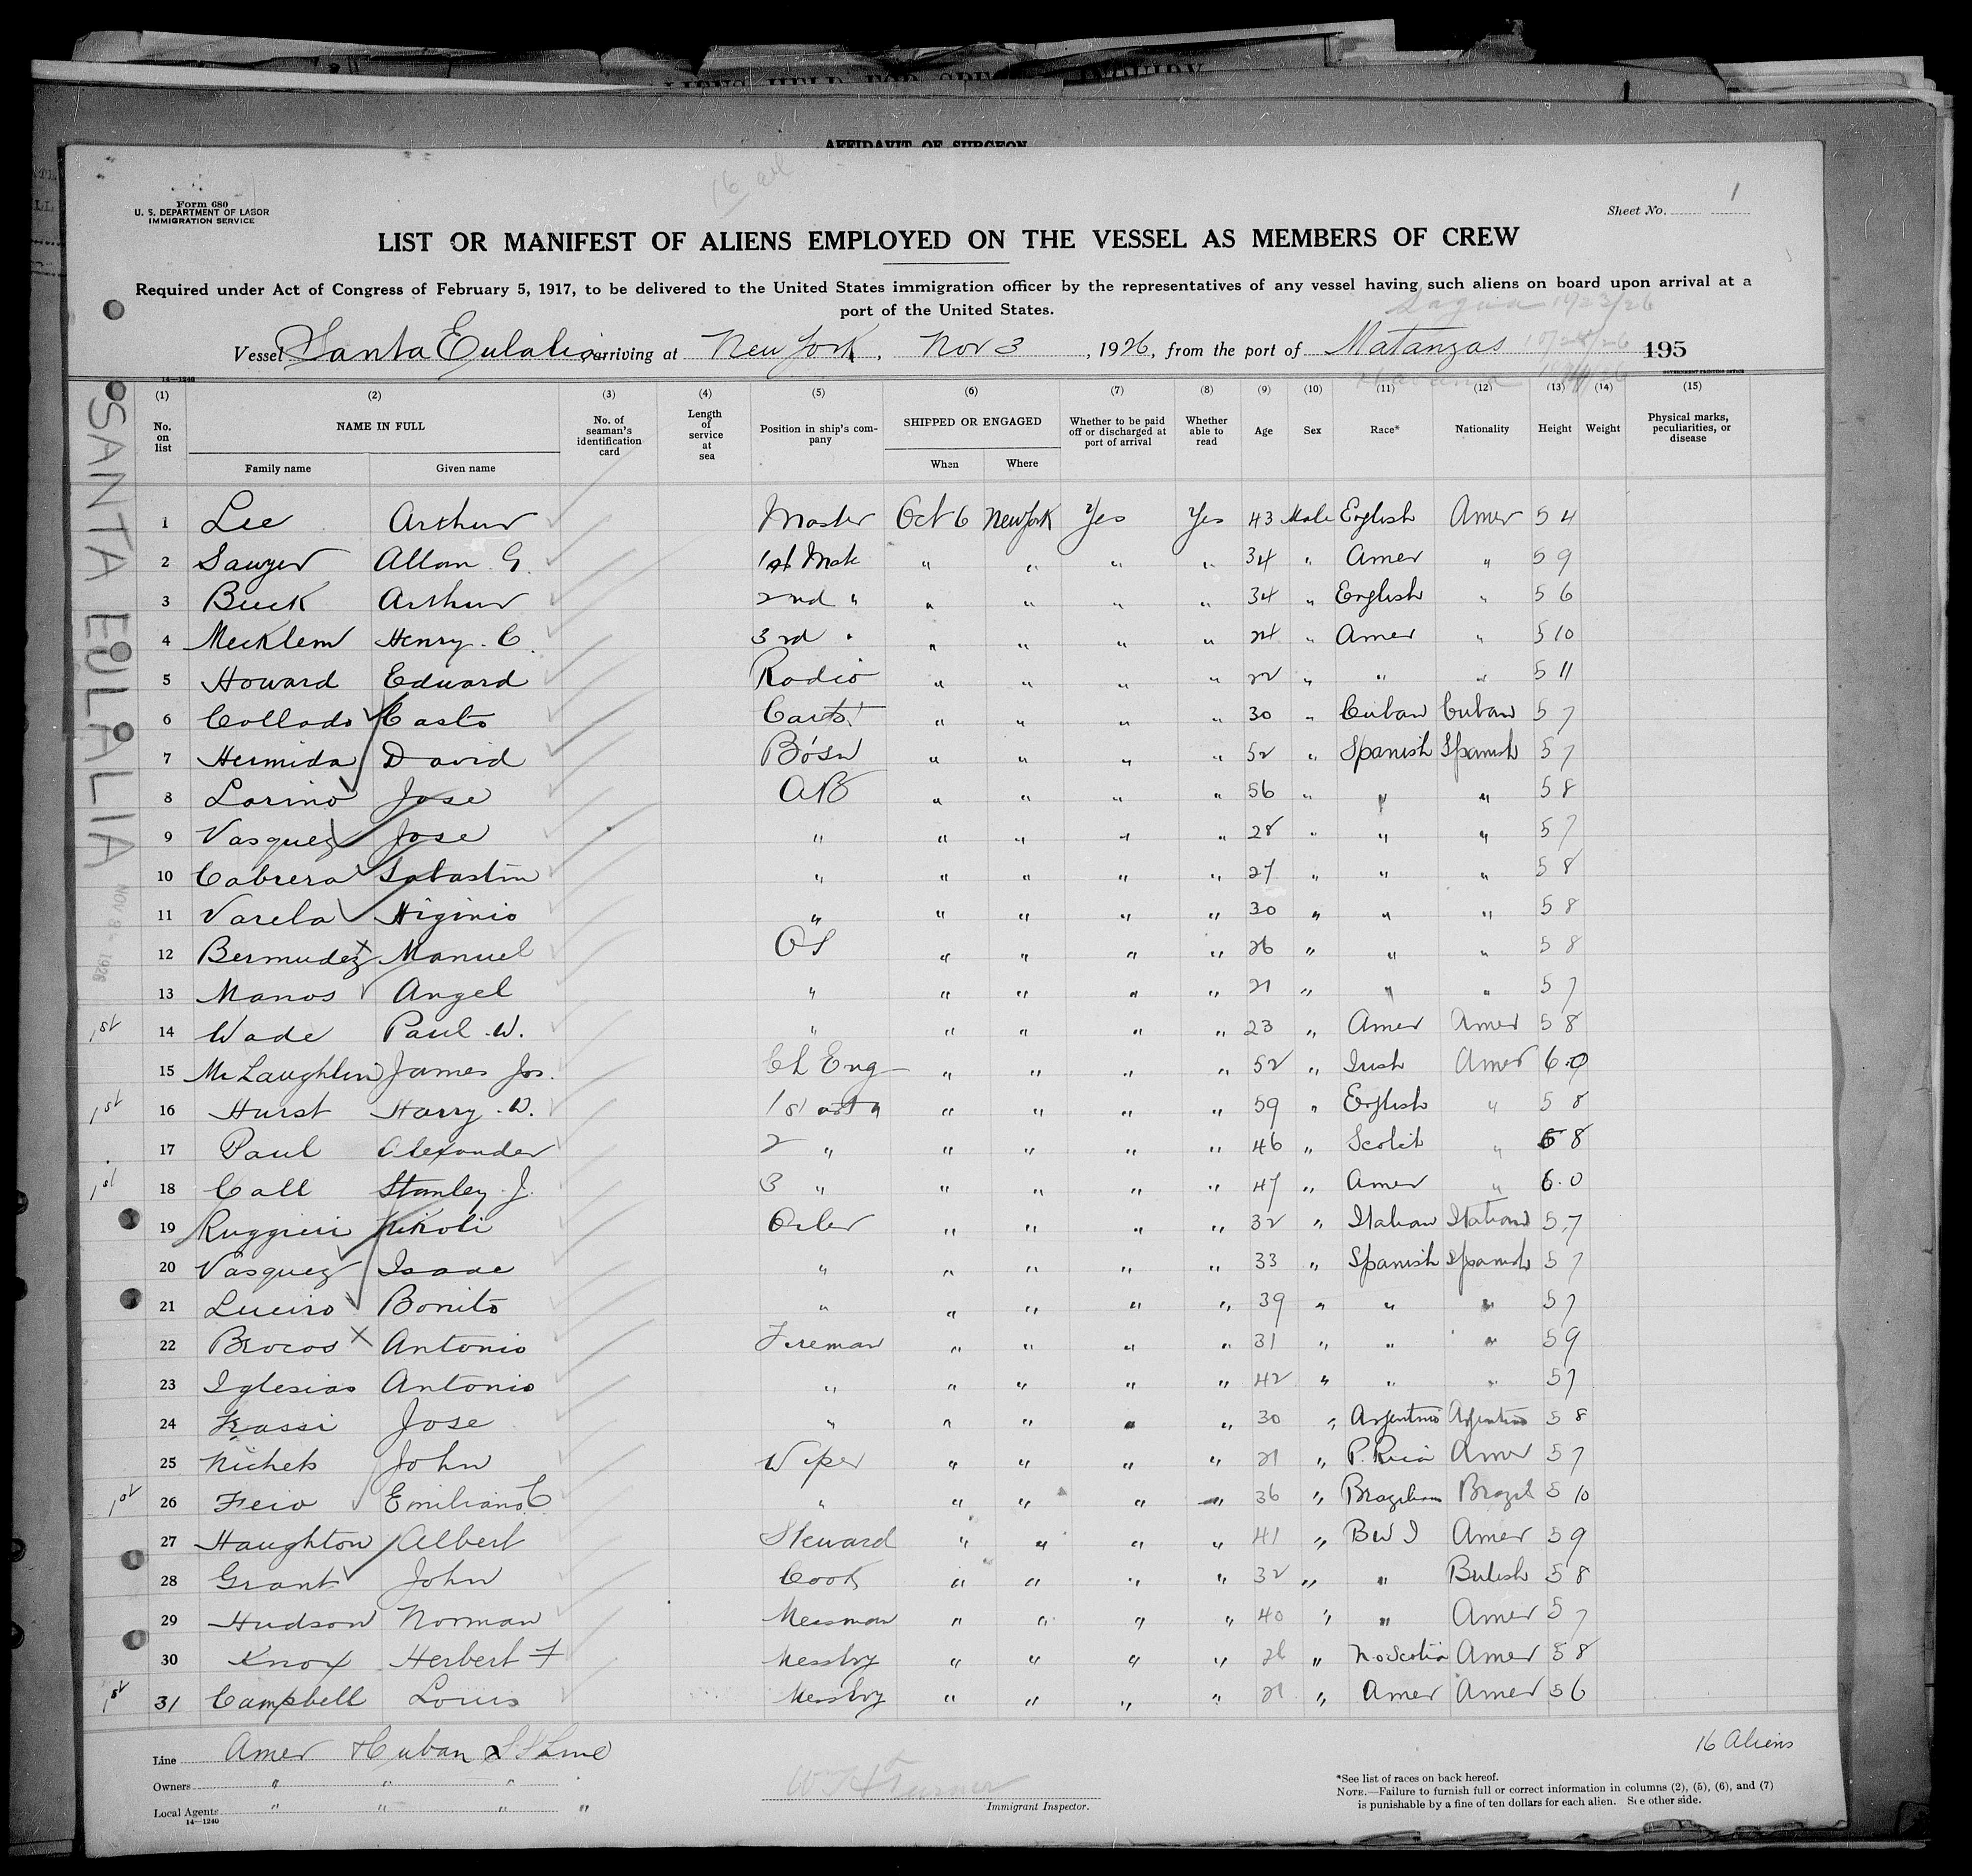 LIENS HELD FOR SPECIAL INQUIRY
AFFIDAVIT OF SURGEON
Form 680
U. S. DEPARTMENT OF LABOR
IMMIGRATION SERVICE
Sheet No. 1
LIST OR MANIFEST OF ALIENS EMPLOYED ON THE VESSEL AS MEMBERS OF CREW
Required under Act of Congress of February 5, 1917, to be delivered to the United States immigration officer by the representatives of any vessel having such aliens on board upon arrival at a
port of the United States.
Vessel Santa Eulalia, arriving at New York, Nov 3, 1926, from the port of Matanzas 10/28/26 195
Havana
14-1240 GOVERNMENT PRINTING OFFICE
(1) (2) (3) (4) (5) (6) (7) (8) (9) (10) (11) (12) (13) (14) (15)
No. on list NAME IN FULL Family name Given name No. of seaman's identification card Length of service at sea Position in ship's company SHIPPED OR ENGAGED When Where Whether to be paid off or discharged at port of arrival Whether able to read Age Sex Race* Nationality Height Weight Physical marks, peculiarities, or disease
SANTA EULALIA
NOV 3 - 1926
1 Lee Arthur Master Oct 6 New York Yes Yes 43 Male English Amer 5 4
2 Sawyer Allan G. 1st Mate " " " " 34 " Amer " 5 9
3 Buck Arthur 2nd " " " " " 34 " English " 5 6
4 Mecklem Henry C. 3rd " " " " " 24 " Amer " 5 10
5 Howard Edward Radio " " " " 22 " " " 5 11
6 Collado Casto Carpt " " " " 30 " Cuban Cuban 5 7
7 Hermida David Bosn " " " " 52 " Spanish Spanish 5 7
8 Larino Jose AB " " " " 56 " " " 5 8
9 Vasquez Jose " " " " " 28 " " " 5 7
10 Cabrera Sabastin " " " " " 27 " " " 5 8
11 Varela Higinio " " " " " 30 " " " 5 8
12 Bermudez Manuel OS " " " " 26 " " " 5 8
13 Manos Angel " " " " " 21 " " " 5 7
1st 14 Wade Paul W. " " " " " 23 " Amer Amer 5 8
15 McLaughlin James Jos. Ch Eng " " " " 52 " Irish Amer 6.0
1st 16 Hurst Harry W. 1st asst " " " " " 59 " English " 5 8
17 Paul Alexander 2 " " " " " 46 " Scotch " 5 8
1st 18 Call Stanley J. 3 " " " " " 47 " Amer " 6.0
19 Ruggieri Nikoli Oiler " " " " 32 " Italian Italian 5.7
20 Vasquez Isaac " " " " " 33 " Spanish Spanish 5 7
21 Lueiro Bonito " " " " " 39 " " " 5 7
22 Brocos Antonio Fireman " " " " 31 " " " 5 9
23 Iglesias Antonio " " " " " 42 " " " 5 7
24 Jose " " " " " 30 " Argentino Argentino 5 8
25 Nichels John Wiper " " " " 21 " P. Rico Amer 5 7
1st 26 Feio Emiliano C " " " " " 36 " Brazilian Brazil 5 10
27 Haughton Albert Steward " " " " 41 " B W I Amer 5 9
28 Grant John Cook " " " " 32 " " British 5 8
29 Hudson Norman Messman " " " " 40 " " Amer 5 7
30 Knox Herbert F Messboy " " " " 26 " No Scotia Amer 5 8
1st 31 Campbell Louis Messboy " " " " 21 " Amer Amer 5 6
16 Aliens
Line Amer & Cuban S S Line
Owners " " "
Local Agents " " " "
14-1240
Wm H Turner
Immigrant Inspector.
*See list of races on back hereof.
NOTE.—Failure to furnish full or correct information in columns (2), (5), (6), and (7)
is punishable by a fine of ten dollars for each alien. See other side.